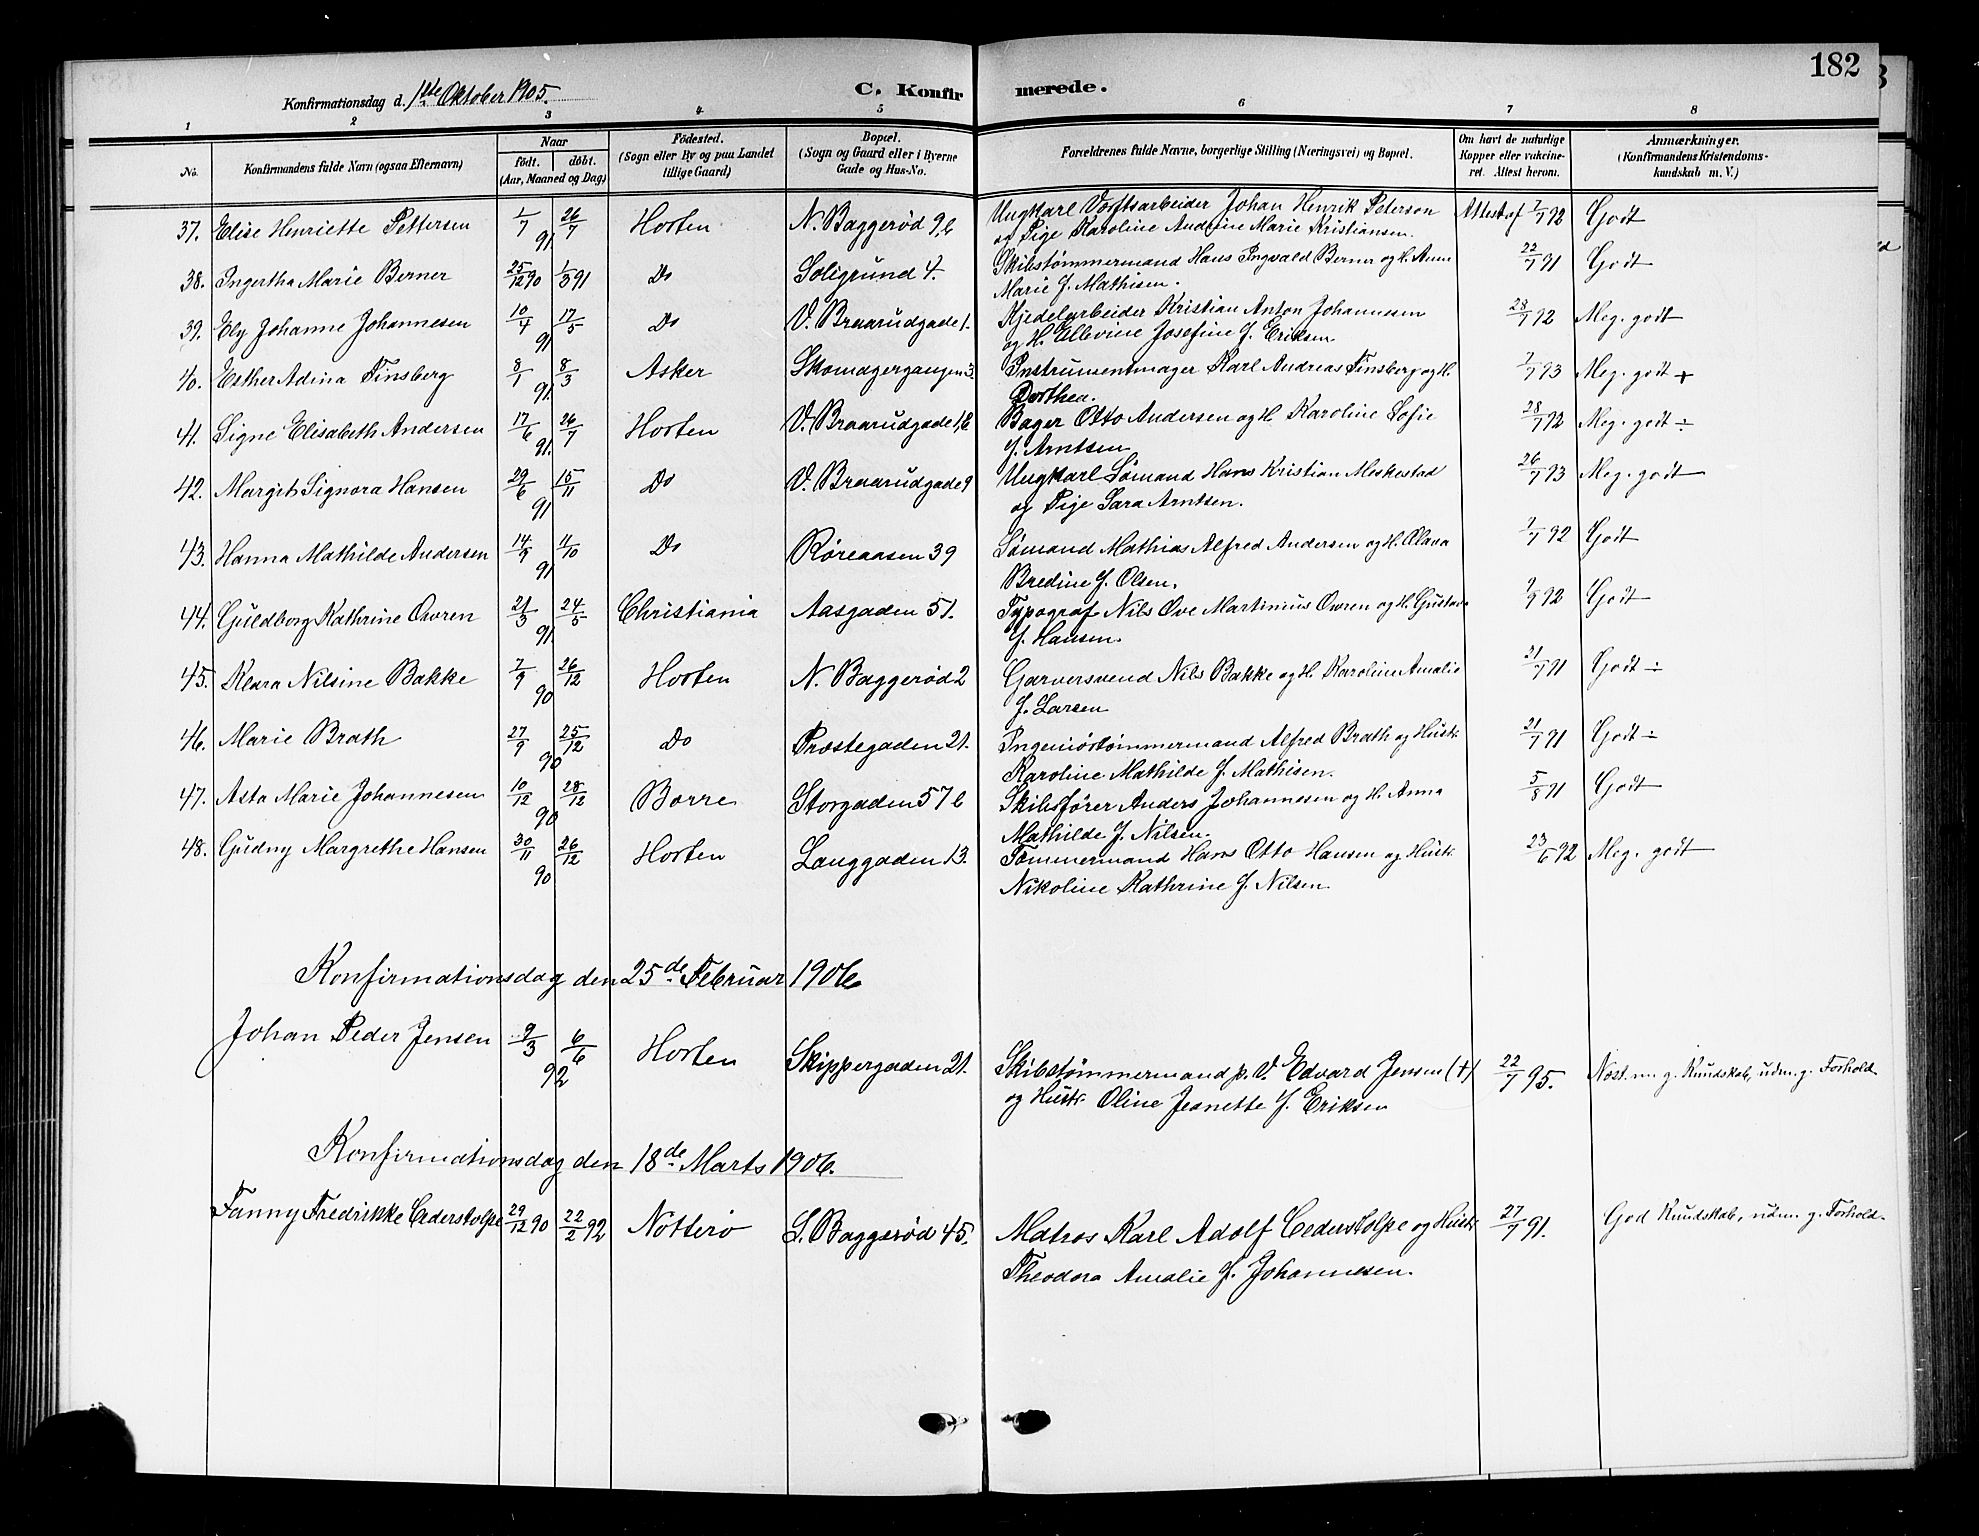 182
Konfirmationsdag d. 1ste Oktober 1905.
C. Konfirmerede.
1 2 3 4 5 6 7 8
No. Konfirmandens fulde Navn (ogsaa Efternavn) Naar født. døbt. (Aar, Maaned og Dag) Fødested. (Sogn eller By og paa Landet tillige Gaard) Bopæl. (Sogn og Gaard eller i Byerne Gade og Hus-No. Forældrenes fulde Navne, borgerlige Stilling (Næringsvei) og Bopæl. Om havt de naturlige Kopper eller vakcineret. Attest herom. Anmærkninger. (Konfirmandens Kristendomskundskab m. V.)
37. Elise Henriette Pettersen 1/7 91 26/7 Horten N. Baggerød 9b Ungkarl Værftsarbeider Johan Henrik Peterson Attest af 7/7 92 Godt
og Pige Karoline Andrine Marie Kristiansen.
38. Ingertha Marie Berner 25/12 90 1/3 91 Do Soligrund 4. Skibstømmermand Hans Ingvald Berner og H. Anne 22/7 91 Godt
Marie f. Mathisen.
39. Ely Johanne Johannesen 10/4 91 17/5 Do V. Braarudgade 1. Kjedelarbeider Kristian Anton Johannesen 28/7 92 Meg. godt
og H. Ellevine Josefine f. Eriksen
40. Esther Adina Finsberg 8/1 91 8/3 Asker Skomagergangen 3. Instrumentmager Karl Andreas Finsberg og H. 7/7 93 Meg. godt +
Dorthea.
41. Signe Elisabeth Andersen 17/6 91. 26/7 Horten V. Braarudgade 1,b Bager Otto Andersen og H. Karoline Sofie 28/7 92 Meg. godt ÷
f. Arntsen
42. Margit Signora Hansen 29/6 91 15/11 Do V. Braarudgade 9 Ungkarl Sømand Hans Kristian Meskestad 26/7 93 Meg. godt
og Pige Sara Arntsen.
43. Hanna Mathilde Andersen 14/9 91 11/10 Do Røreaasen 39 Sømand Mathias Alfred Andersen og H. Olava 7/7 92 Godt
Bredine f. Olsen.
44. Guldborg Kathrine Owren 21/3 91. 24/5 Christiania Aasgaden 51. Typograf Nils Ove Martinius Owren og H. Gustava 7/9 92 Godt
f. Hansen.
45. Klara Nilsine Bakke 7/9 90 26/12 Horten N. Baggerød 2 Garversvend Nils Bakke og H. Karoline Amalie 21/7 91 Godt ÷
f. Larsen
46. Marie Brath 27/9 90 25/12 Do Præstegaden 21. Ingeniørtømmermand Alfred Brath og Hustr. 21/7 91 Godt ÷
Karoline Mathilde f. Mathisen.
47. Asta Marie Johannesen 10/12 90 28/12 Borre Storgaden 57b Skibsfører Anders Johannesen og H. Anna 5/8 91 Godt
Mathilde f. Nilsen.
48. Gudny Margrethe Hansen 30/11 90 26/12 Horten Langgaden 13. Tømmermand Hans Otto Hansen og Hustr. 23/6 92 Meg. godt
Nikoline Kathrine f. Nilsen.
Konfirmationsdag den 25de Februar 1906
Johan Peder Jensen 9/3 92 6/6 Horten Skippergaden 21. Skibstømmermand p. V. Edvard Jensen (+) 22/7 95. Næst. m. g. Kundskab, udm. g. Forhold
og Hustr. Oline Jeanette f. Eriksen
Konfirmationsdag den 18de Marts 1906.
Fanny Fredrikke Cederstolpe 29/12 90 22/2 92 Nøtterø S. Baggerød 45. Matros Karl Adolf Cederstolpe og Hustr. 27/7 91. God Kundskab, udm. g. Forhold.
Theodora Amalie f. Johannesen.